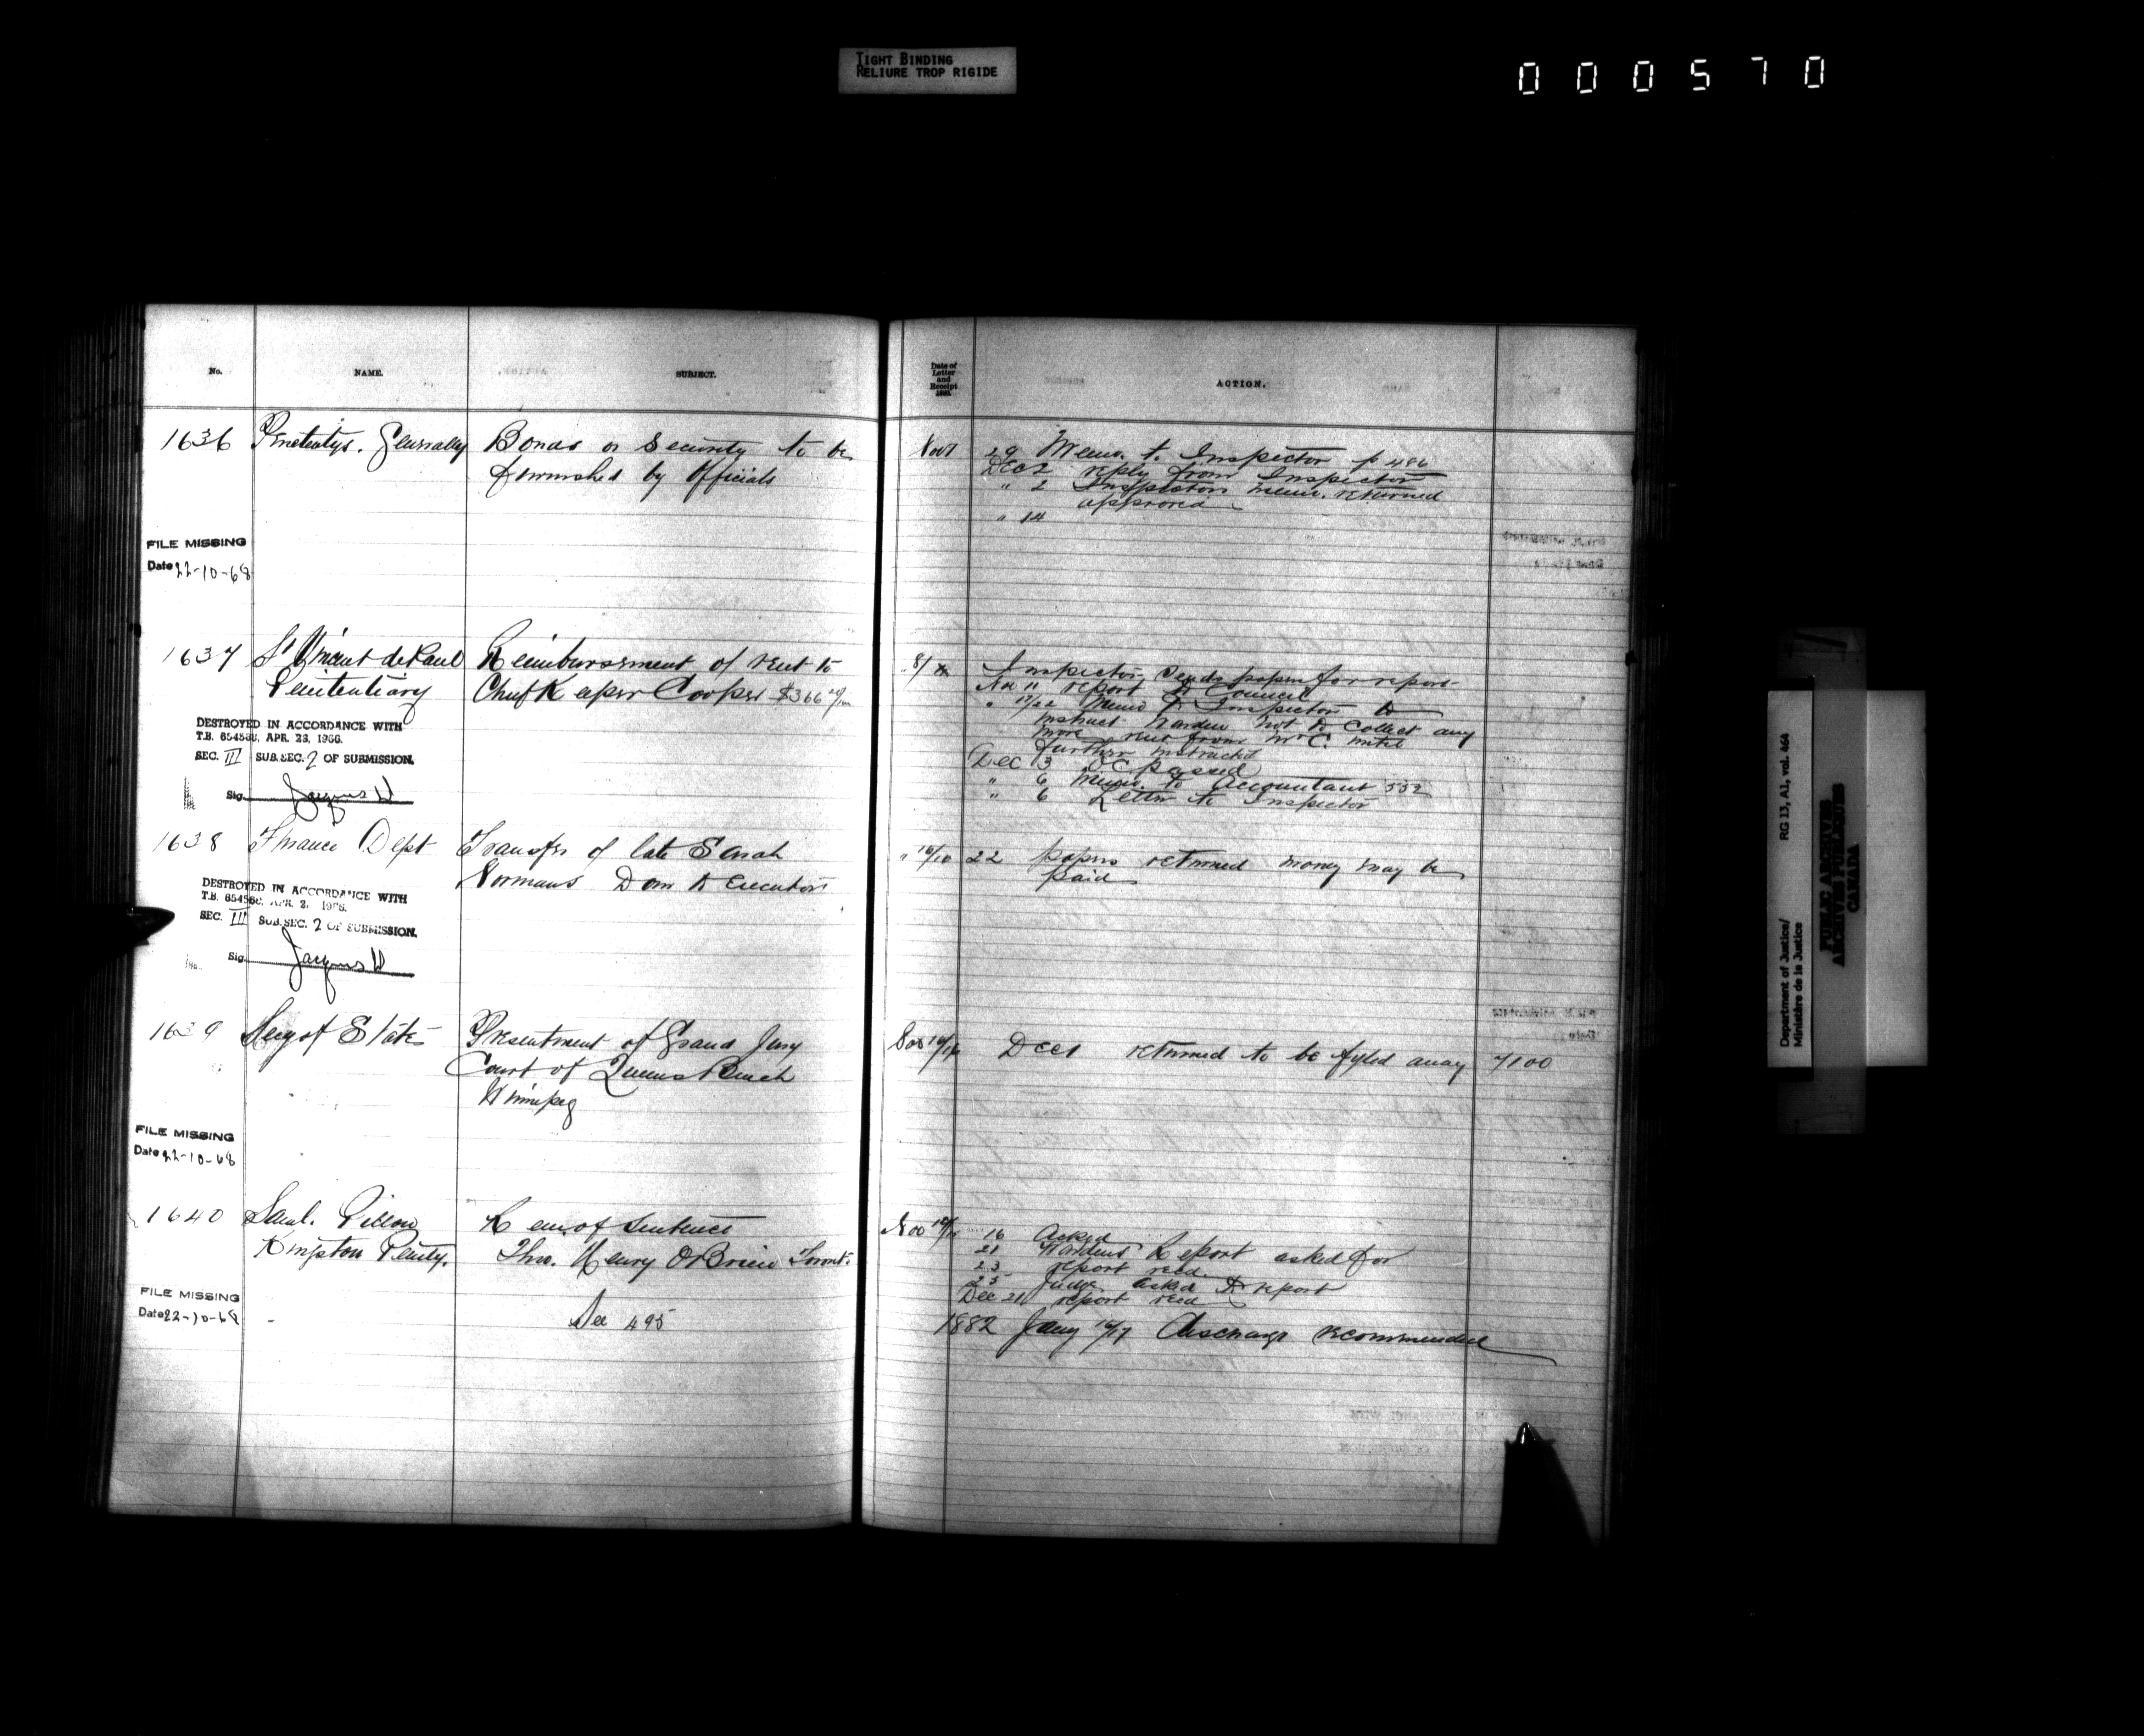 TIGHT BINDING
RELIURE TROP RIGIDE
000570
No. NAME. SUBJECT.
Date of
Letter
and
Receipt
ACTION.
1636 Penetentys. Generally Bonds or Security to be
furnished by Officials
Nov 29 Memo. to Inspector p 486
Dec 2 reply from Inspector
" 2 Inspectors memo. returned
approved
" 14
FILE MISSING
Date 22-10-68
1637 St Vincent de Paul Reimbursement of rent to
Penitentiary Chief Keeper Cooper $366
Inspector sends papers for report
Nov 11 report to Council
" 17/22 Memo to Inspector to
instruct Warden not to collect any
more rent from Mr C. until
further instructed
Dec 3 OC passed
" 6 Memo. to Accountant 552
" 6 Letter to Inspector
DESTROYED IN ACCORDANCE WITH
T.B. 654560, APR. 28, 1966.
SEC. III SUB.SEC. 2 OF SUBMISSION.
Sig.
1638 Finance Dept Transfer of late Sarah
Normans Dom to Executors
" 16/18 22 papers returned money may be
paid
DESTROYED IN ACCORDANCE WITH
T.B. 654560, APR. 2
SEC. III SUB.SEC. 2 OF SUBMISSION.
Sig.
1639 Secy of State Presentment of Grand Jury
Court of Queens Bench
Winnipeg
Nov Dec 1 returned to be fyled away 7100
FILE MISSING
Date 22-10-68
1640 Saml. Dillon Rem. of Sentence
Kingston Penity. Thos. Henry O'Brien Toronto
See 495
Nov 16 Asked
21 Wardens Report asked for
23 report recd.
25 Judge asked to report
Dec 21 report recd
1882 Jany 16/17 discharge recommended
FILE MISSING
Date 22-10-68
Department of Justice/ RG 13, A1, vol. 464
Ministère de la Justice
PUBLIC ARCHIVES
ARCHIVES PUBLIQUES
CANADA